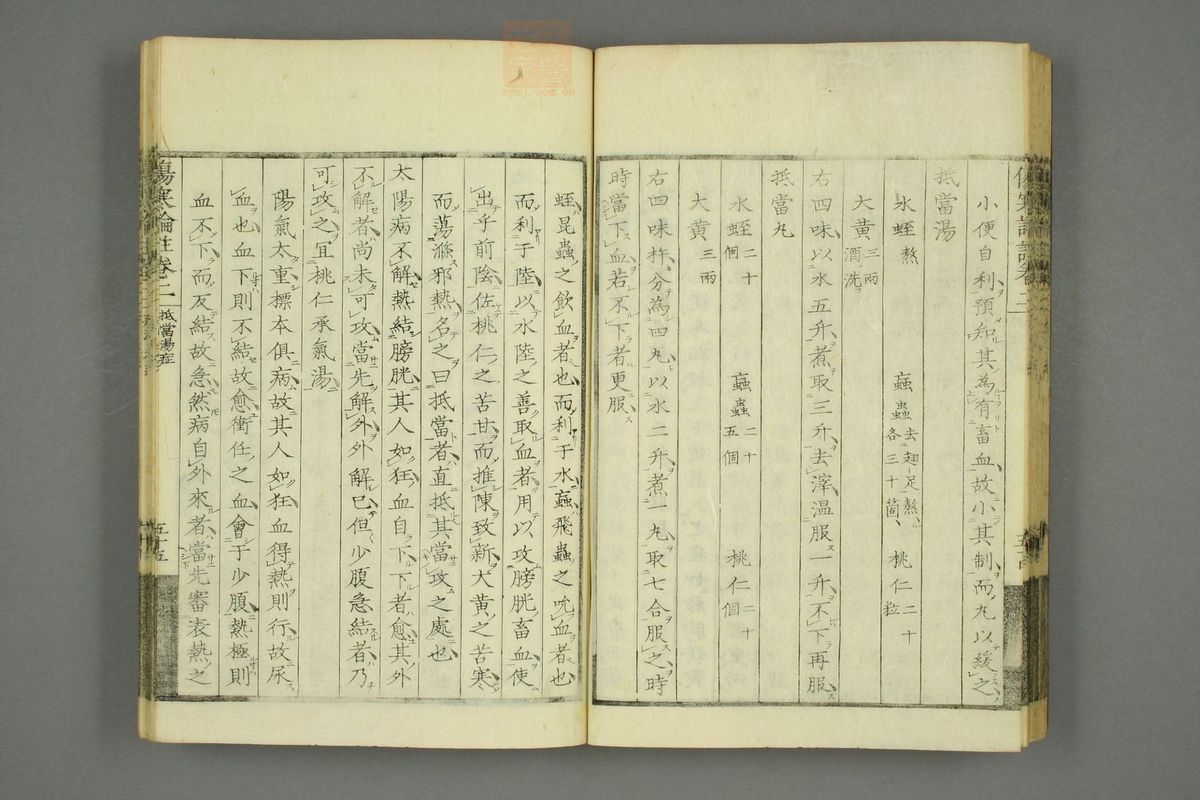 小便自利預知其為有畜血故小其制而丸以緩之
抵當湯
水蛭熬　䖟蟲去翅足熬各三十箇　桃仁二十粒
大黃三兩酒洗
右四味以水五升煮取三升去滓溫服一升不下再服
抵當丸
水蛭二十個　䖟蟲二十五個　桃仁二十個
大黃三兩
右四味杵分為四丸以水二升煮一丸取七合服之晬
時當下血若不下者更服
蛭昆蟲之飲血者也而利于水䖟飛蟲之吮血者也
而利于陸以水陸之善取血者用以攻膀胱畜血使
出乎前陰佐桃仁之苦甘而推陳致新大黃之苦寒
而蕩滌邪熱名之曰抵當者直抵其當攻之處也
太陽病不解熱結膀胱其人如狂血自下下者愈其外
不解者尚未可攻當先解外外解已但少腹急結者乃
可攻之宜桃仁承氣湯
陽氣太重標本俱病故其人如狂血得熱則行故尿
血也血下則不結故愈衝任之血會于少腹熱極則
血不下而反結故急然病自外來者當先審表熱之
傷寒論註卷二　抵當湯症　五十五